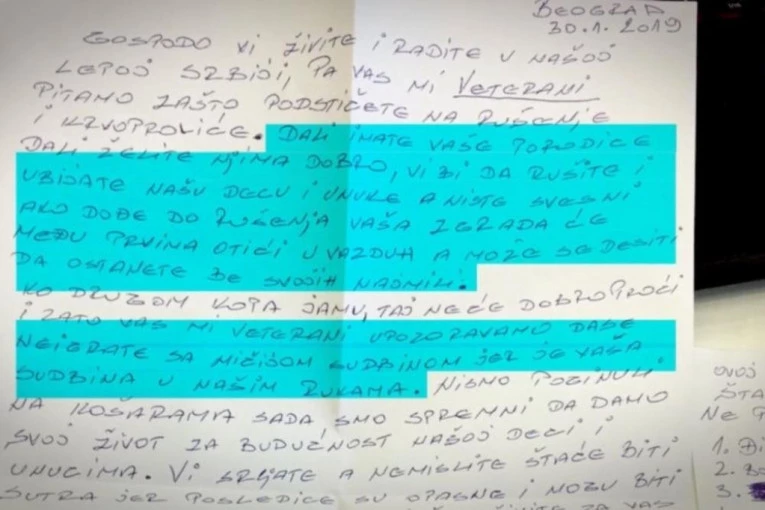 BEOGRAD
30.1.2019
GOSPODO VI ŽIVITE I RADITE U NAŠOJ
LEPOJ SRBIJI, PA VAS MI VETERANI
PITAMO ZAŠTO PODSTIČETE NA RUŠENJE
I KRVOPROLIĆE. DALI IMATE VAŠE PORODICE
DALI ŽELITE NJIMA DOBRO, VI BI DA RUŠITE I
UBIJATE NAŠU DECU I UNUKE A NISTE SVESNI
AKO DOĐE DO RUŠENJA VAŠA ZGRADA ĆE
MEĐU PRVIMA OTIĆI U VAZDUH A MOŽE SE DESITI
DA OSTANETE BE SVOJIH NAJMILI.
KO DRUGOM KOPA JAMU, TAJ NEĆE DOBRO PROĆI
I ZATO VAS MI VETERANI UPOZORAVAMO DASE
NEIGRATE SA MIČIJOM SUDBINOM JER JE VAŠA
SUDBINA U NAŠIM RUKAMA. NISMO POGINULI
NA KOŠARAMA SADA SMO SPREMNI DA DAMO
SVOJ ŽIVOT ZA BUDUĆNOST NAŠOJ DECI I
UNUCIMA. VI SRLJATE A NEMISLITE ŠTAĆE BITI
SUTRA JER POSLEDICE SU OPASNE I MOGU BITI
ZA VAS
OVOJ
ŠTA
NE
1.
2.
3.